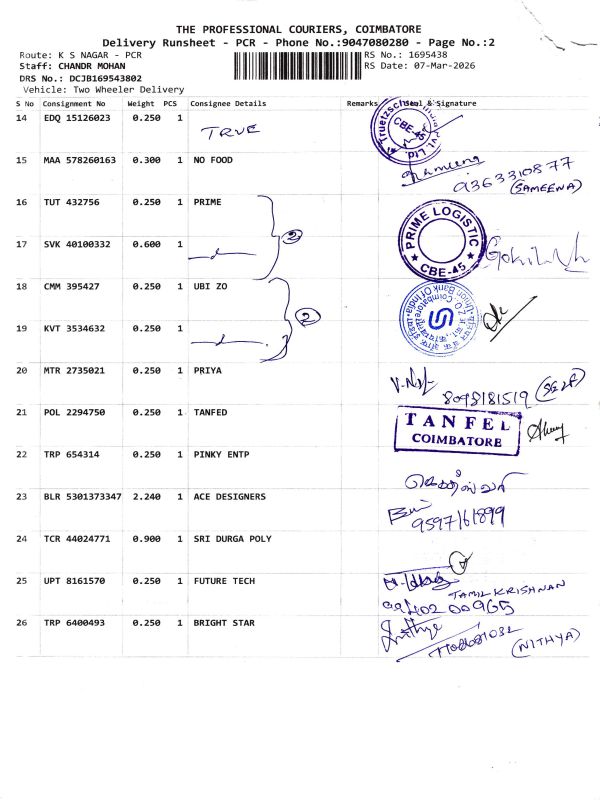 THE PROFESSIONAL COURIERS, COIMBATORE
Delivery Runsheet - PCR - Phone No.:9047080280 - Page No.:2
Route: K S NAGAR - PCR
RS No.: 1695438
Staff: CHANDR MOHAN
RS Date: 07-Mar-2026
DRS No.: DCJB169543802
Vehicle: Two Wheeler Delivery
S No Consignment No Weight PCS Consignee Details Remarks Seal & Signature
14 EDQ 15126023 0.250 1 TRUE
Truetzschler India Pvt. Ltd CBE-45
15 MAA 578260163 0.300 1 NO FOOD
Sameena 9363310877
(SAMEENA)
16 TUT 432756 0.250 1 PRIME
2
PRIME LOGISTIC CBE-45
17 SVK 40100332 0.600 1
18 CMM 395427 0.250 1 UBI ZO
2
Union Bank Of India
19 KVT 3534632 0.250 1
20 MTR 2735021 0.250 1 PRIYA
8098181519
21 POL 2294750 0.250 1 TANFED
TANFEL
COIMBATORE
22 TRP 654314 0.250 1 PINKY ENTP
23 BLR 5301373347 2.240 1 ACE DESIGNERS
9597161899
24 TCR 44024771 0.900 1 SRI DURGA POLY
25 UPT 8161570 0.250 1 FUTURE TECH
TAMIL KRISHNAN
26 TRP 6400493 0.250 1 BRIGHT STAR
(NITHYA)